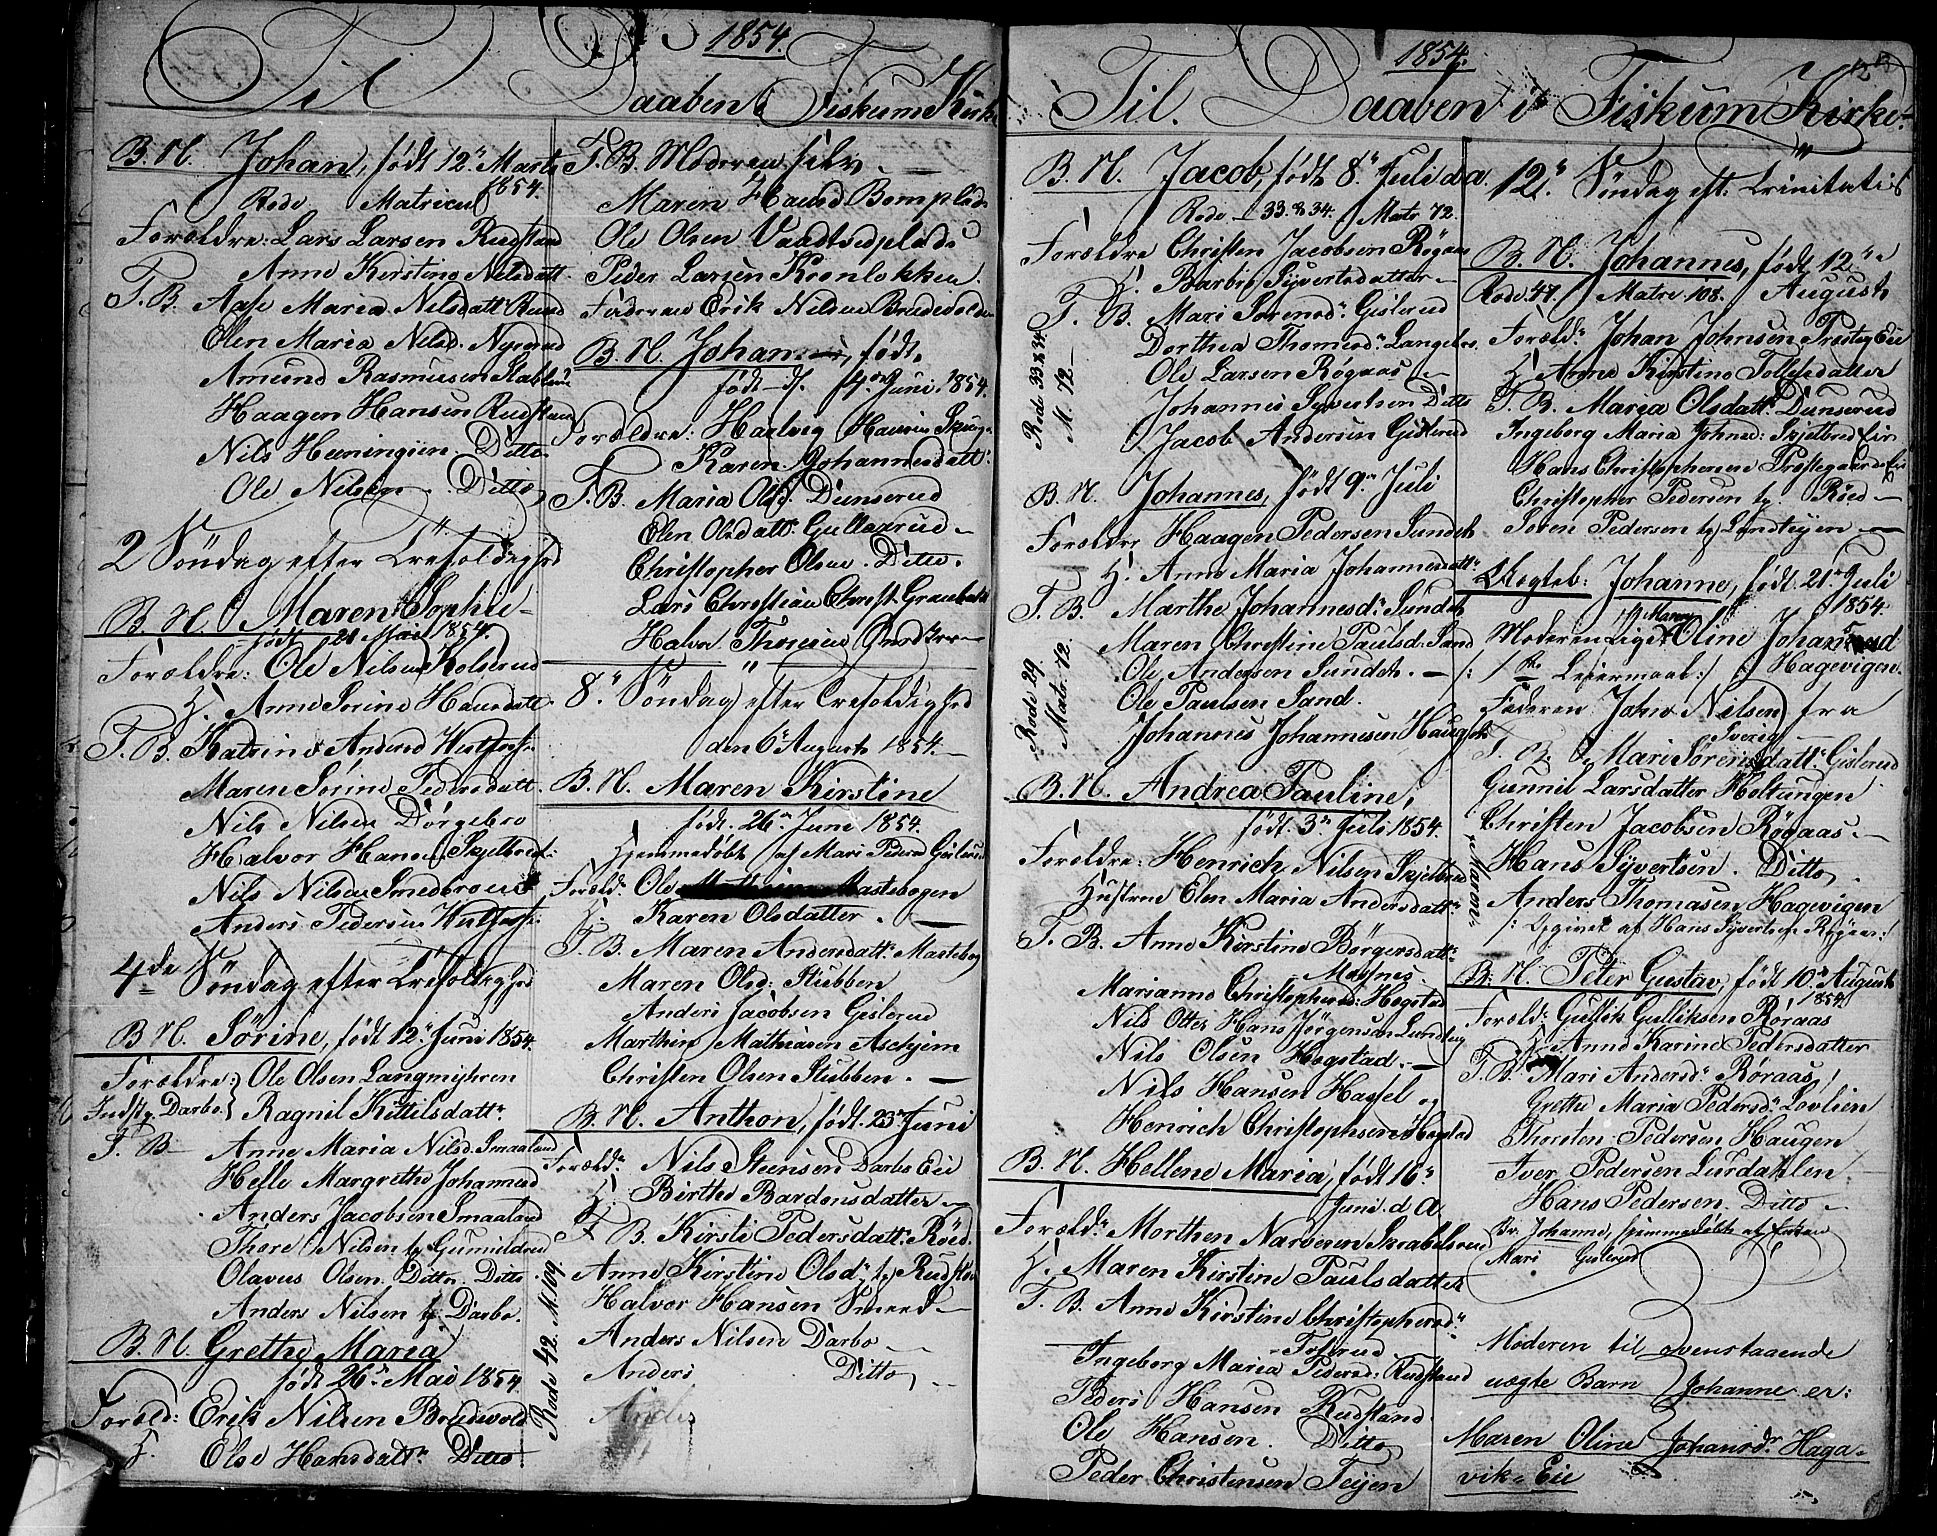 1854.
Til Daaben i Fiskum Kirke
B. N. Johan, født 12. Marts
1854.
Rode Matricul
Forældre: Lars Larsen Rudstand
Anne Kirstine Nilsdatt.
T. B. Aase Maria Nilsdatt
Elen Maria Nilsd.
Amund Rasmusen
Haagen Hansen Rudstand
Nils Henningsen. Ditto
Ole Nilsen. Ditto
2 Søndag efter Trefoldighed
B. N. Maren Sophie
født 21 Mai 1854.
Forældre: Ole Nilsen Kolserud
H. Anne Sørine Hansdatt
T. B. Katrine Andersd
Maren Sørine Pedersdatt.
Nils Nilsen Dørgebro
Halvor Hansen Skjelbred
Nils Nilsen Smedbround
Anders Pedersen
4de Søndag efter Trefoldighed
B. N. Sørine, født 12. Juni 1854.
Forældre: Ole Olsen Langmyhren
Indst. Darbo. Ragnil Kittilsdatt.
T. B. Anne Maria Nilsd. Smaaland
Helle Margrethe Johannesd
Anders Jacobsen Smaaland
Thore Nilsen
Olavus Olsen. Ditto. Ditto
Anders Nilsen Darbo.
B. N. Grethe Maria
født 26. Mai 1854
Foræld: Erik Nilsen Bredevold
H. Else Hansdatt. Ditto.
T. B. Moderen selv
Maren Hansd
Ole Olsen
Peder Larsen Kronlokken
Faderen Erik Nilsen Bredevolden
B. N. Johan, født
født d. 4. Juni 1854.
Forældre: Hartvig Hansen
Karen Johannesdatt.
T. B. Maria Olsd. Dunserud
Elen Olsdatt. Gullaarud
Christopher Olsen. Ditto.
Lars Christian Christ.
Halvor Thoresen
8. Søndag efter Trefoldighed
den 6. August 1854.
B. N. Maren Kirstine
født. 26. Juni 1854.
Hjemmedøbt af Mari Peders Gislerud
Foræld. Ole Mastebogen
H. Karen Olsdatter.
T. B. Maren Andersdatt. Mastebog
Maren Olsd: Stubben
Anders Jacobsen Gislerud
Marthin Mathiasen Aschjem
Christen Olsen Stubben.
B. N. Anthon, født. 23 Juni
Foræld. Nils Steensen Darbo Eie
H. Birthe Bardonsdatter
T. B. Kirsti Pedersdatt. Røed.
Anne Kirstine Olsd.
Halvor Hansen Smeed
Anders Nilsen Darbo
Anders Ditto
Rode 42. M. 109.
1854.
Til Daaben i Fiskum Kirke
B. N. Jacob, født 8. Juli d. a.
Rode 33. & 34. Matr 72.
Forældre Christen Jacobsen Røgaas
H. Barbro Syvertsdatter
T. B. Mari Sørensd. Gislerud
Dorthea Thomesd. Langebro
Ole Larsen Røgaas
Johannes Syvertsen Ditto
Jacob Andersen Gislerud
Rode 33 & 34
M. 72
B. N. Johannes, født 9. Juli
Forældre Haagen Pedersen Sundet
H. Anne Maria Johannesdatt.
T. B. Marthe Johannesd. Sundet
Maren Christine Paulsd. Sand
Ole Andersen Sundet.
Ole Paulsen Sand.
Johannes Johannesen Haugen
Rode 29
Matr. 72
B. N. Andrea Pauline,
født. 3. Juli 1854.
Forældre: Henrich Nilsen Skjelbred
Hustrue Elen Maria Andersdatt.
T. B. Anne Kirstine Børgersdatt.
Møynes
Marianne Christophersd. Hogstad
Nils Otter Hans Jørgensen
Nils Olsen Hogstad.
Nils Hansen Hassel og
Henrich Christophsen Hogstad
B. N. Hellene Maria, født 16.
Juni d. A.
Foræld. Morthen Narvesen
H. Maren Kirstine Paulsdatter
T. B. Anne Kirstine Christophersd.
Fosserud
Ingeborg Maria Pedersd. Rudstand
Peder Hansen Rudstand.
Ole Hansen. Ditto
Peder Christensen Teijen
12. Søndag eft. Trinitatis
B. N. Johannes, født 12.
Rode. 47. Matr. 108. August
Foræld. Johan Johnsen Prestey Eie
H. Anne Kirstine Tollefsdatter
T. B. Maria Olsdatt. Dunserud
Ingeborg Maria Johnsd: Skjelbred Eie
Hans Christophersen Præstegaards Eie
Christopher Pedersen Røed
Søren Pedersen
Uægteb: Johanne, født. 21. Juli
1854.
Moderen Pige Maren Oline Johansd
Hagevigen.
/: Leiermaal:/
Faderen John Nilsen fra
Sverig
T. B. Mari Sørensdatt. Gislerud
Gunnil Larsdatter Holtungen
Christen Jacobsen Røgaas.
Hans Syvertsen. Ditto
Anders Thomasen Hagevigen
/: Opgivet af Hans Syvertsen Røgaas:/
Maren
B. N. Peter Gustav, født 10. August
1854
Foræld: Gullik Gulliksen Røraas
H. Anne Karine Pedersdatter
T. B. Mari Andersd. Røraas
Grethe Maria Pedersd. Lovlien
Thorsten Pedersen Haugen
Iver Pedersen Lurdahlen
Hans Pedersen. Ditto
Johanne, hjemmedøbt af Enken
Mari Gislerud
Moderen til ovenstaaende
uægte Barn Johanne er:
Maren Oline Johansdr Haga-
vik- Eie